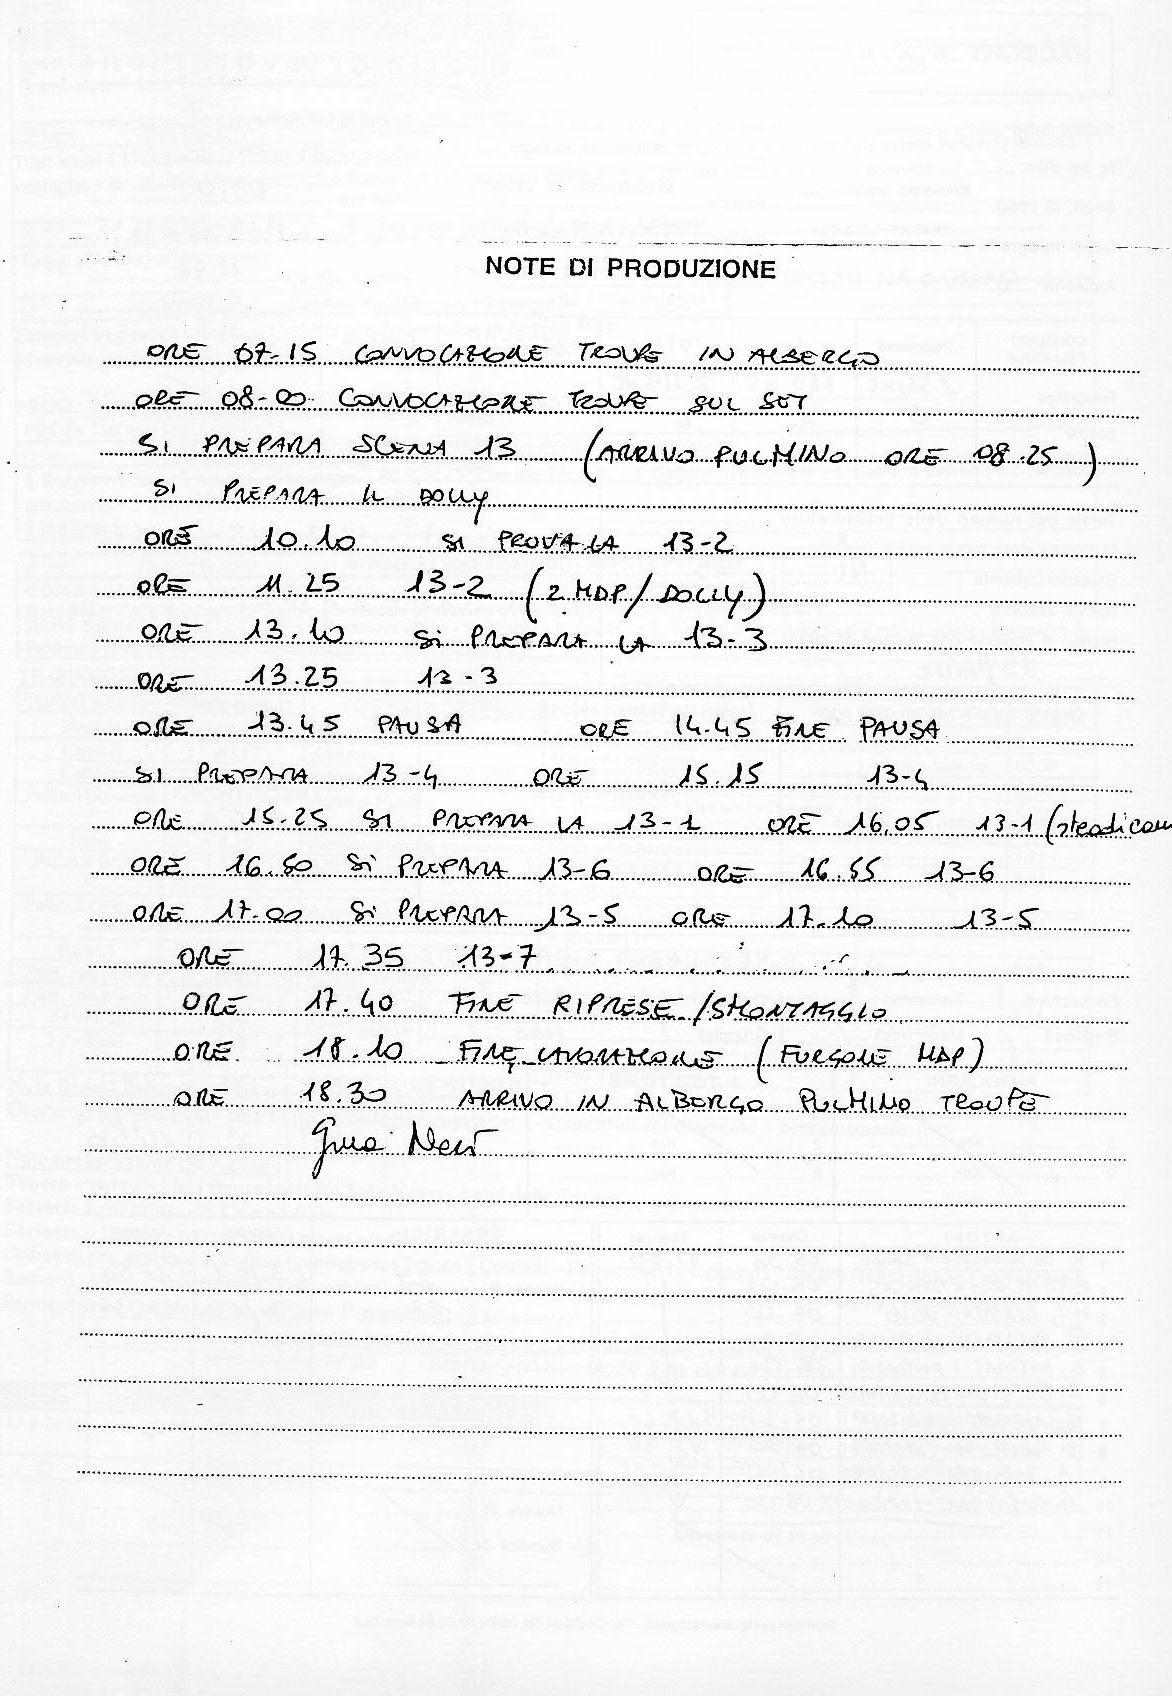 NOTE DI PRODUZIONE
ORE 07-15 CONVOCAZIONE TROUPE IN ALBERGO
ORE 08-00 CONVOCAZIONE TROUPE SUL SET
SI PREPARA SCENA 13 (ARRIVO PULMINO ORE 08.25)
SI PREPARA IL DOLLY
ORE 10.10 SI PROVA LA 13-2
ORE 11.25 13-2 (2 MDP/DOLLY)
ORE 13.10 SI PREPARA LA 13-3
ORE 13.25 13-3
ORE 13.45 PAUSA ORE 14.45 FINE PAUSA
SI PREPARA 13-4 ORE 15.15 13-4
ORE 15.25 SI PREPARA LA 13-1 ORE 16.05 13-1 (steadicam
ORE 16.50 SI PREPARA 13-6 ORE 16.55 13-6
ORE 17.00 SI PREPARA 13-5 ORE 17.10 13-5
ORE 17.35 13-7
ORE 17.40 FINE RIPRESE/SMONTAGGIO
ORE 18.10 FINE LAVORAZIONE (FURGONE MDP)
ORE 18.30 ARRIVO IN ALBERGO PULMINO TROUPE